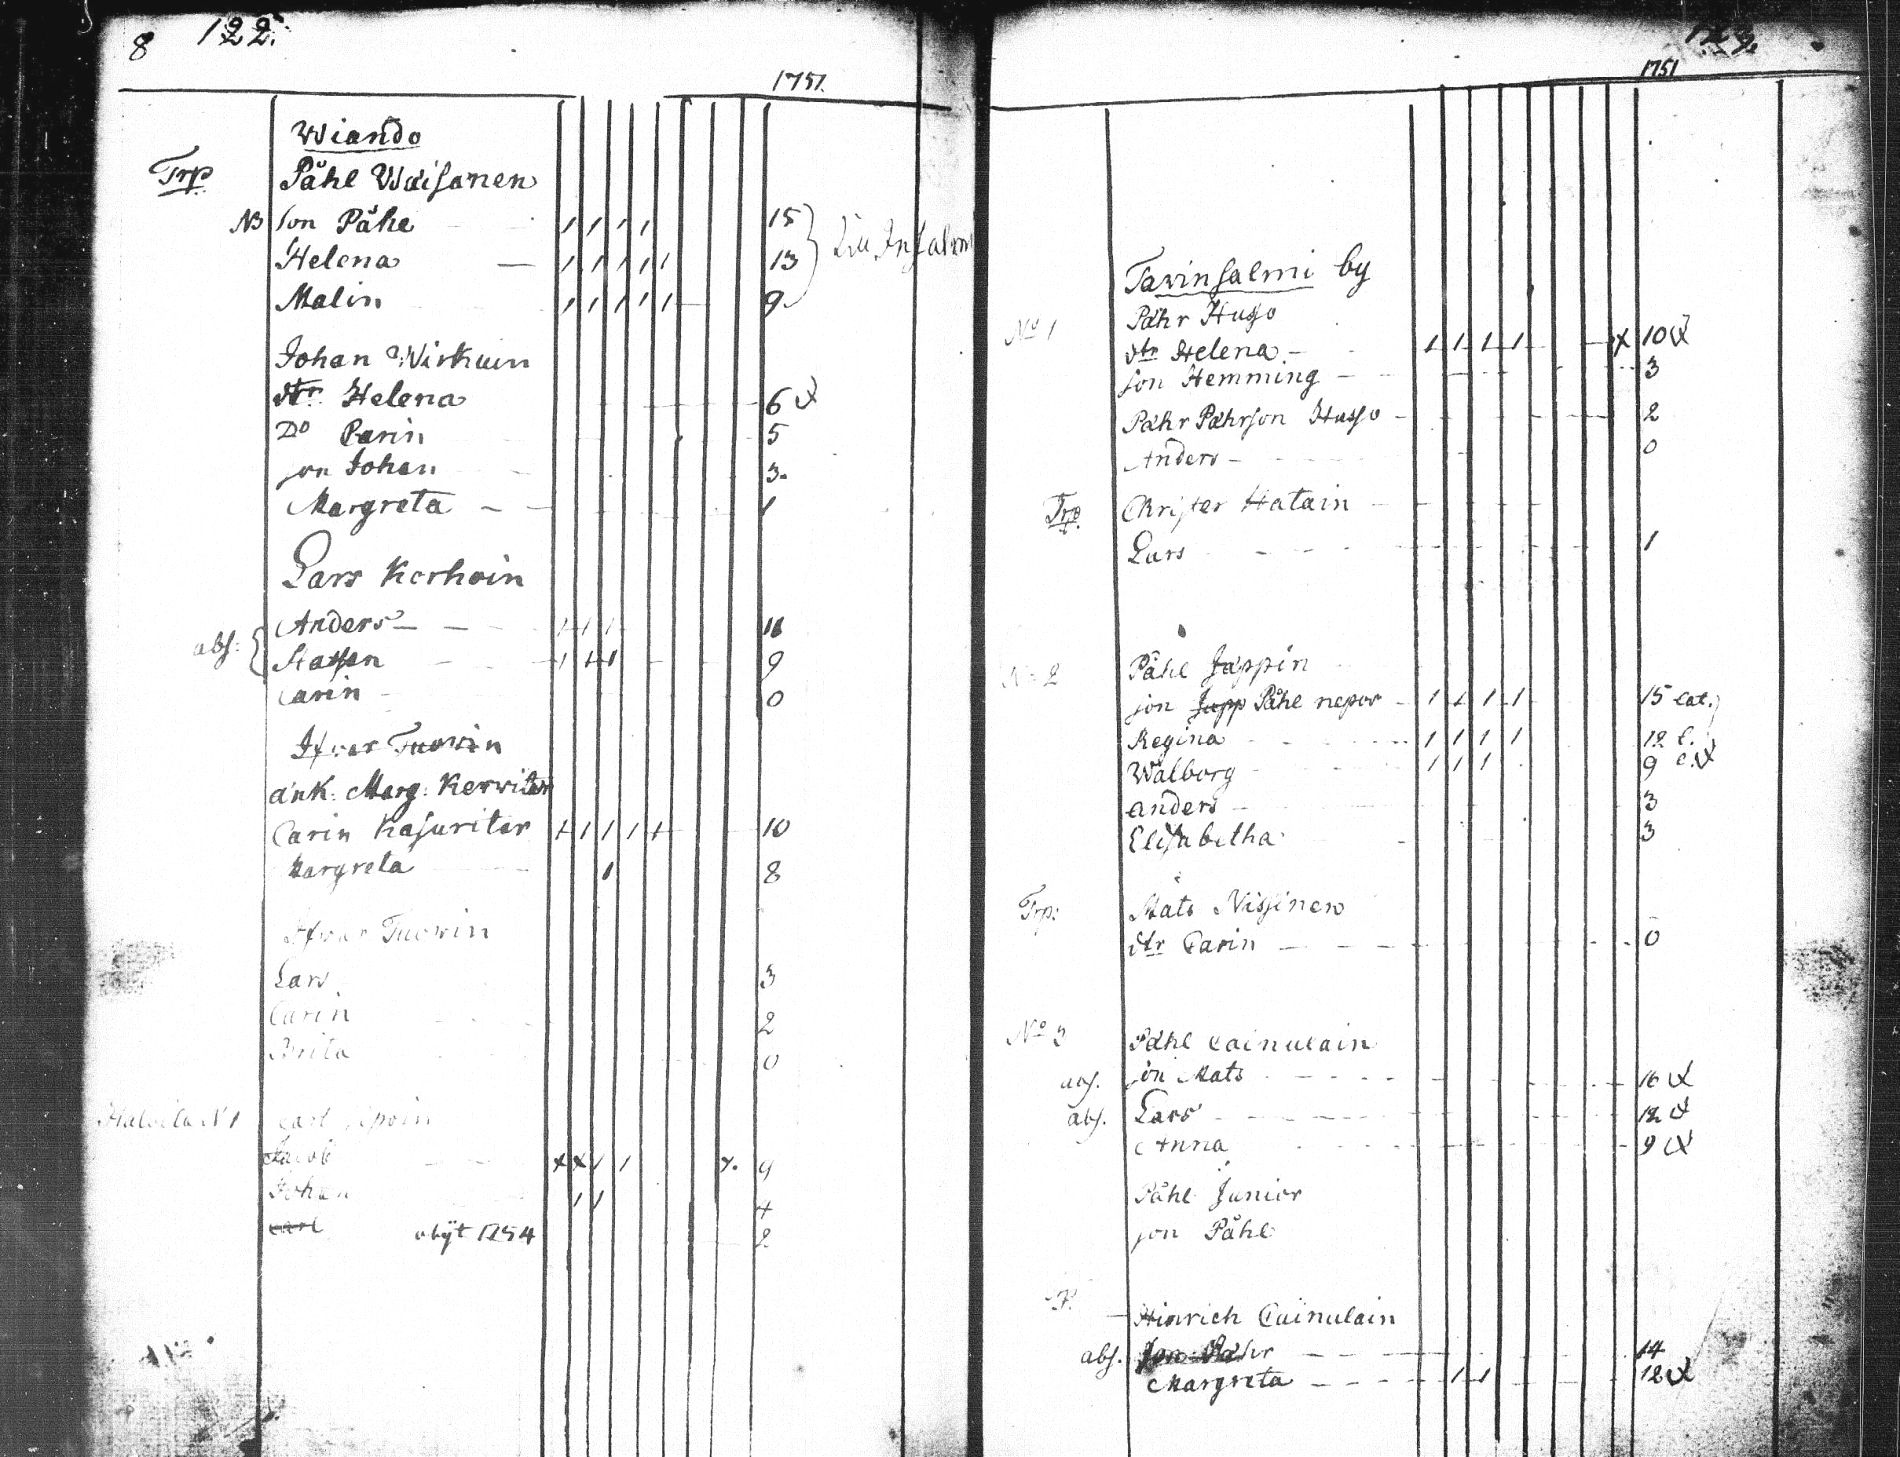 8 122.
1751.
Wiando
Trp Påhl Waisanen
NB son Påhl 15
Helena 13
Malin 9
Johan Wirkuin
dtr Helena 6
Do Carin 5
son Johan 3.
Margreta 1
Lars Kerhoin
abs: Anders 11
Staffan 9
Carin 0
Ifvar Tuowin
änk: Marg: Kerwitar
Carin Kasuritar 10
Margreta 8
Ifvar Tuowin
Lars 3
Carin 2
Brita 0
Carl
Jacob 9
Johan 4
Carl obijt 1754 2
123.
1751
Tavinsalmi by
No 1 Påhr Husso
dtr Helena x 10
son Hemming 3
Påhr Påhrson Husso 2
Anders 0
Trp Christer Hatain
Lars 1
No 2 Påhl Jäppin
son Jäpp Påhl nepos 15 cat.
Regina 12 c.
Walborg 9 c.
anders 3
Elisabetha 3
Trp: Mats Nissinen
dtr Carin 0
No 3 Påhl Cainulain
abs. son Mats 16
abs. Lars 12
Anna 9
Påhl Junior
son Påhl
Hinrich Cainulain
abs. son Påhr 14
Margreta 12